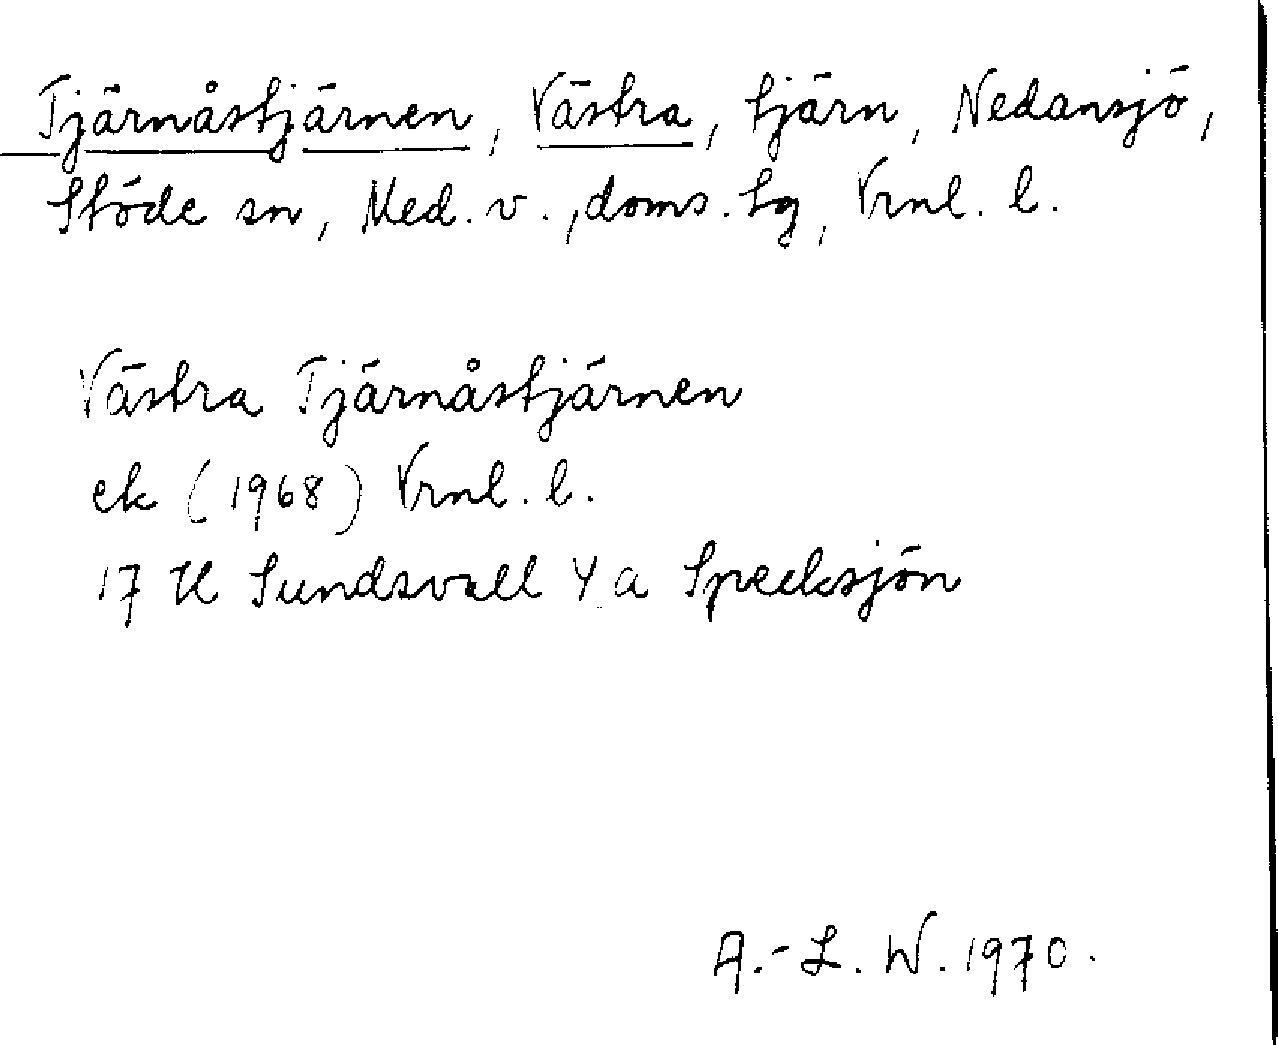 Tjärnåstjärnen, Västra, tjärn, Nedansjö,
Stöde sn, Med. v., doms. sg, Vrnl. l.
Västra Tjärnåstjärnen
ek (1968) Vrnl. l.
17 H Sundsvall 4 a Specksjön
A.-L. W. 1970.